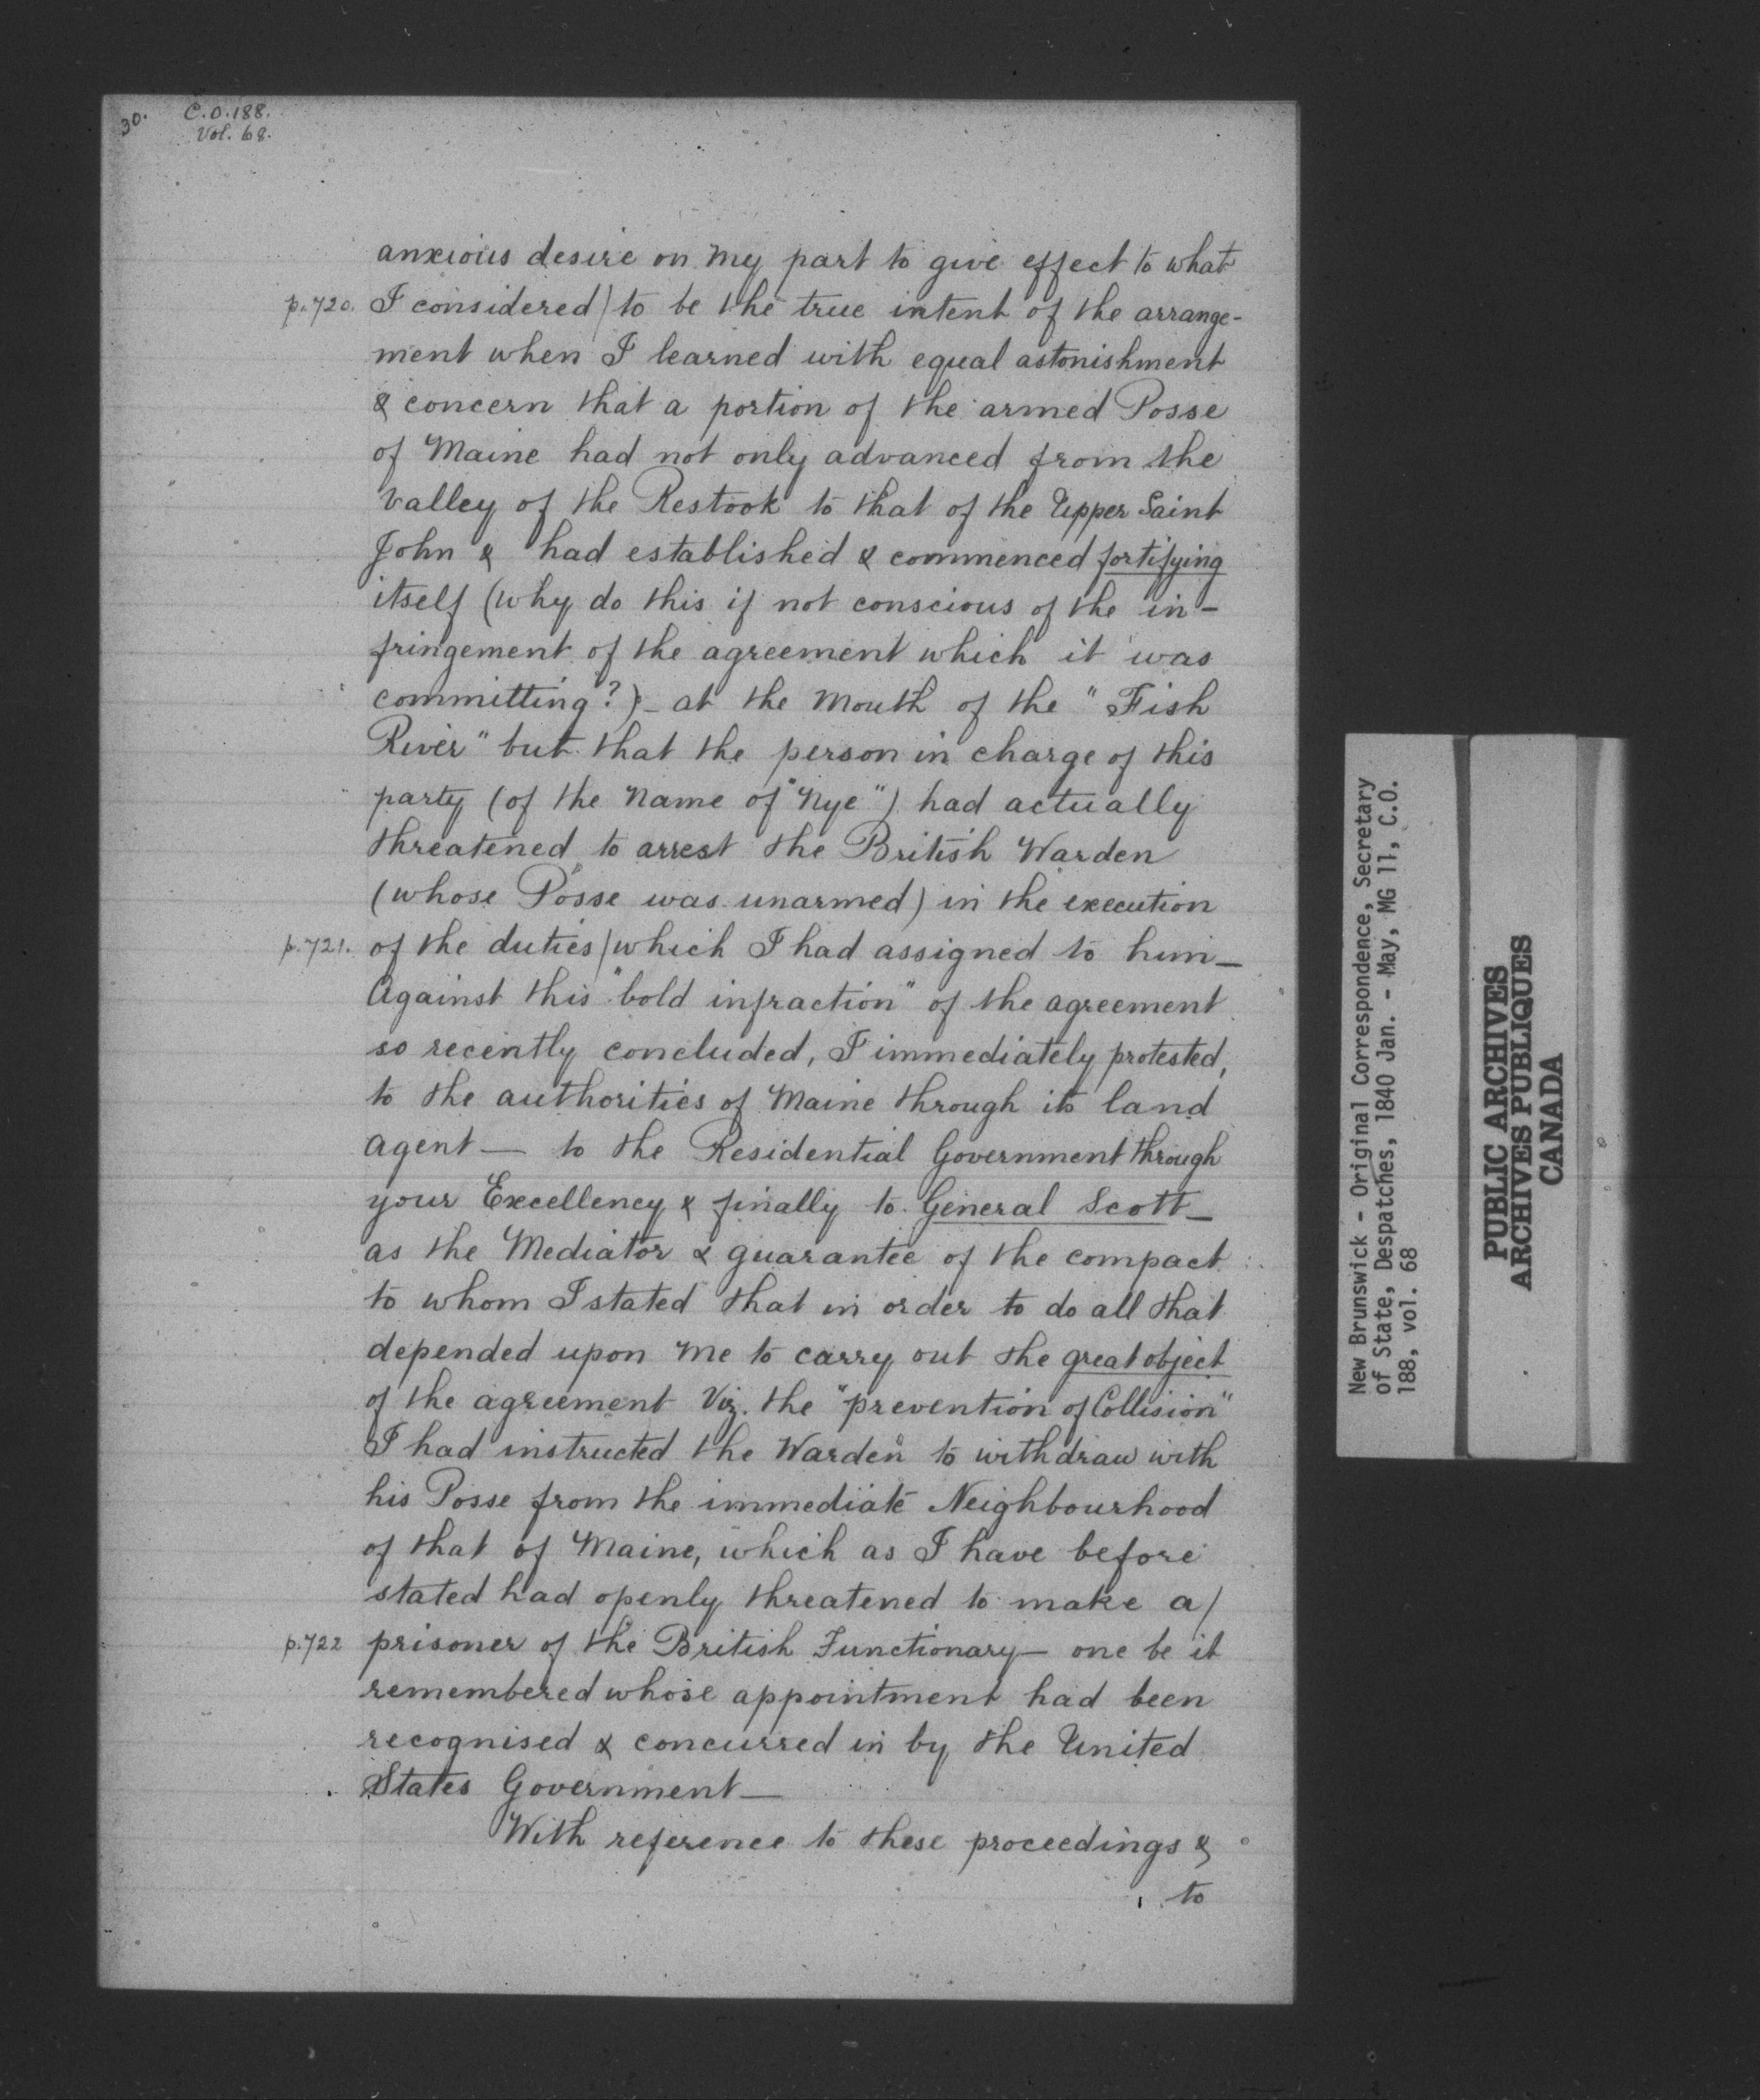 30.
C.O.188.
Vol. 68.
anxious desire on my part to give effect to what
p.720. I considered/to be the true intent of the arrange-
ment when I learned with equal astonishment
& concern that a portion of the armed Posse
of Maine had not only advanced from the
valley of the Restook to that of the Upper Saint
John & had established & commenced fortifying
itself (why do this if not conscious of the in-
fringement of the agreement which it was
committing?)- at the mouth of the "Fish
River" but that the person in charge of this
party (of the name of "Nye") had actually
threatened to arrest the British Warden
(whose Posse was unarmed) in the execution
p.721. of the duties/which I had assigned to him—
Against this "bold infraction" of the agreement
so recently concluded, I immediately protested,
to the authorities of Maine through its land
agent— to the Residential Government through
your Excellency & finally to General Scott—
as the Mediator & guarantee of the compact
to whom I stated that in order to do all that
depended upon me to carry out the great object
of the agreement Viz. the "prevention of Collision"
I had instructed the Warden to withdraw with
his Posse from the immediate Neighbourhood
of that of Maine, which as I have before
stated had openly threatened to make a/
p.722 prisoner of the British Functionary— one be it
remembered whose appointment had been
recognised & concurred in by the United
States Government—
With reference to these proceedings &
to
New Brunswick - Original Correspondence, Secretary
of State, Despatches, 1840 Jan. - May, MG 11, C.O.
188, vol. 68
PUBLIC ARCHIVES
ARCHIVES PUBLIQUES
CANADA